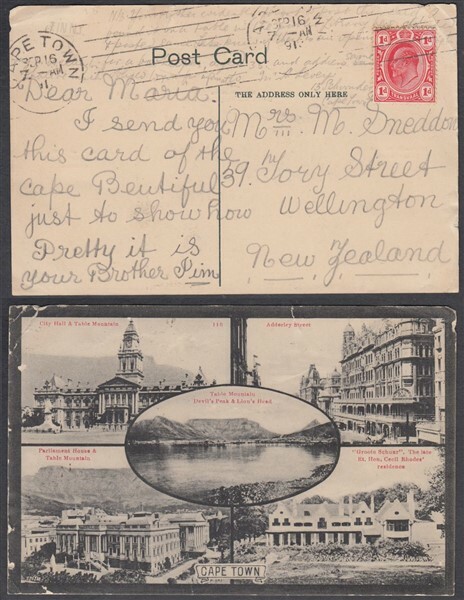 CAPE TOWN
SEP 16
7 - AM
SEP 16
7 - AM
91
Post Card
THE ADDRESS ONLY HERE
1d 1d
TRANSVAAL
Dear Maria.
I send you
this card of the
cape Beutiful
just to show how
Pretty it is
your Brother Jim
Mrs. M. Sneddon
39. Tory Street
Wellington
New Zealand
City Hall & Table Mountain
110
Adderley Street
Table Mountain
Devil's Peak & Lion's Head
Parliament House &
Table Mountain
"Groote Schuur". The late
Rt. Hon. Cecil Rhodes'
residence
CAPE TOWN